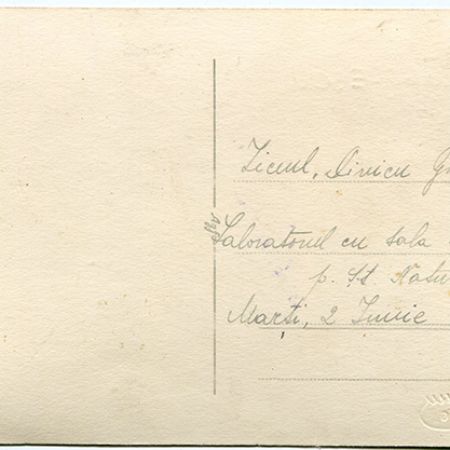 Liceul, Divicu
Laboratorul cu sala
p. Șt Natu
Marți, 2 Iunie